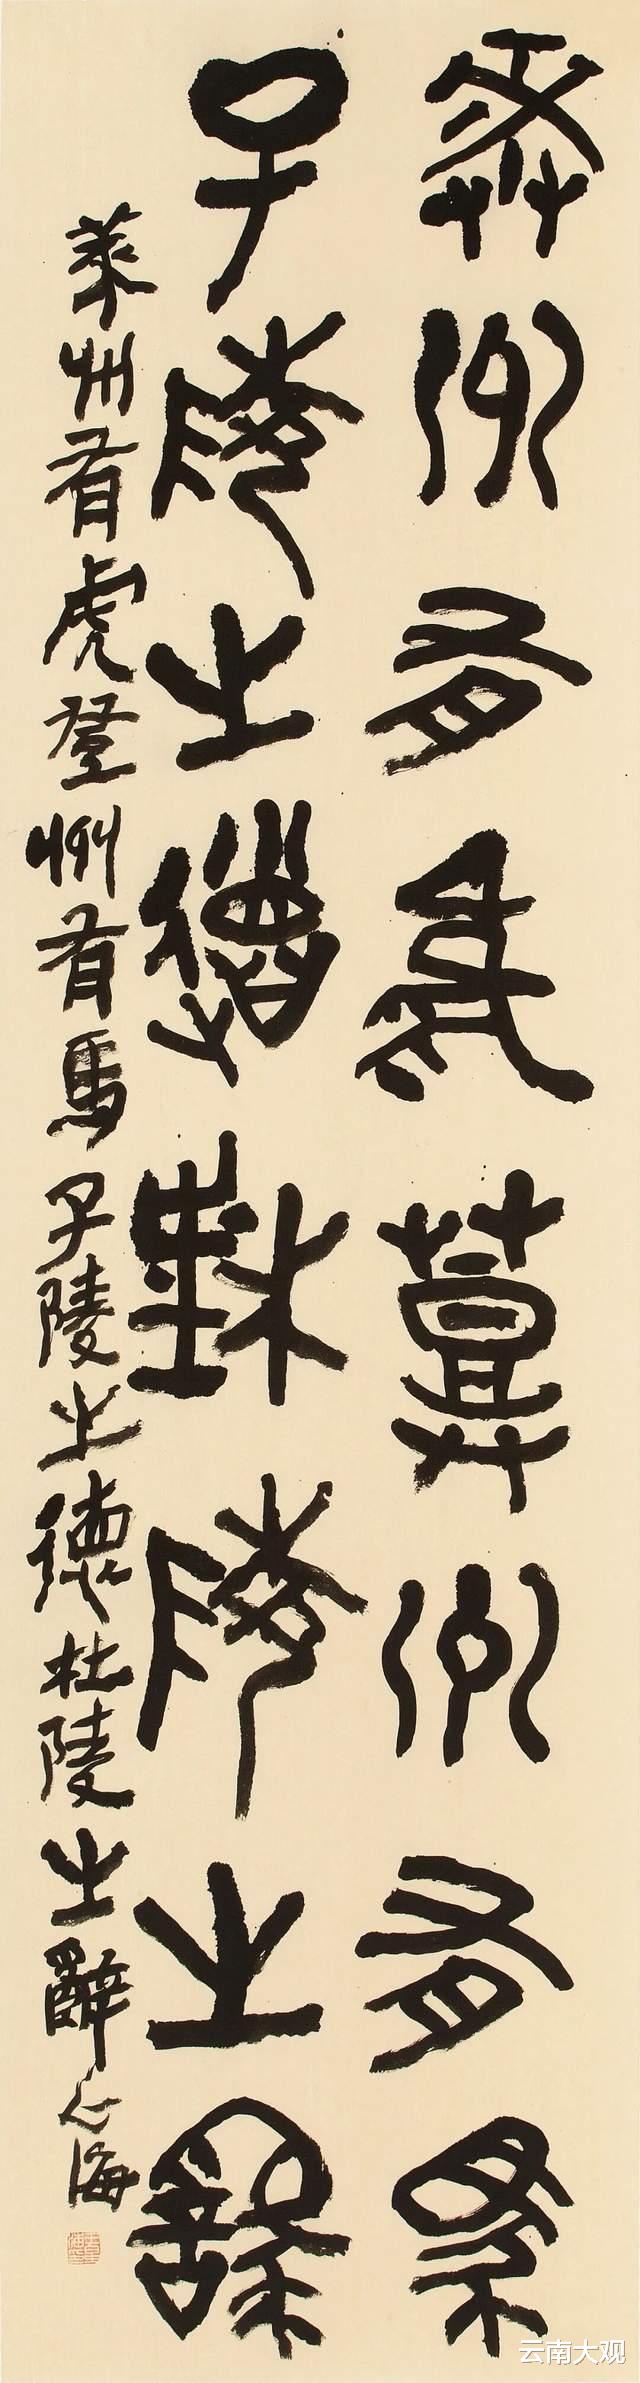 萊州有虎登州有馬
子陵之德杜陵之辭
萊州有虎登州有馬子陵之德杜陵之辭心海
云南大观